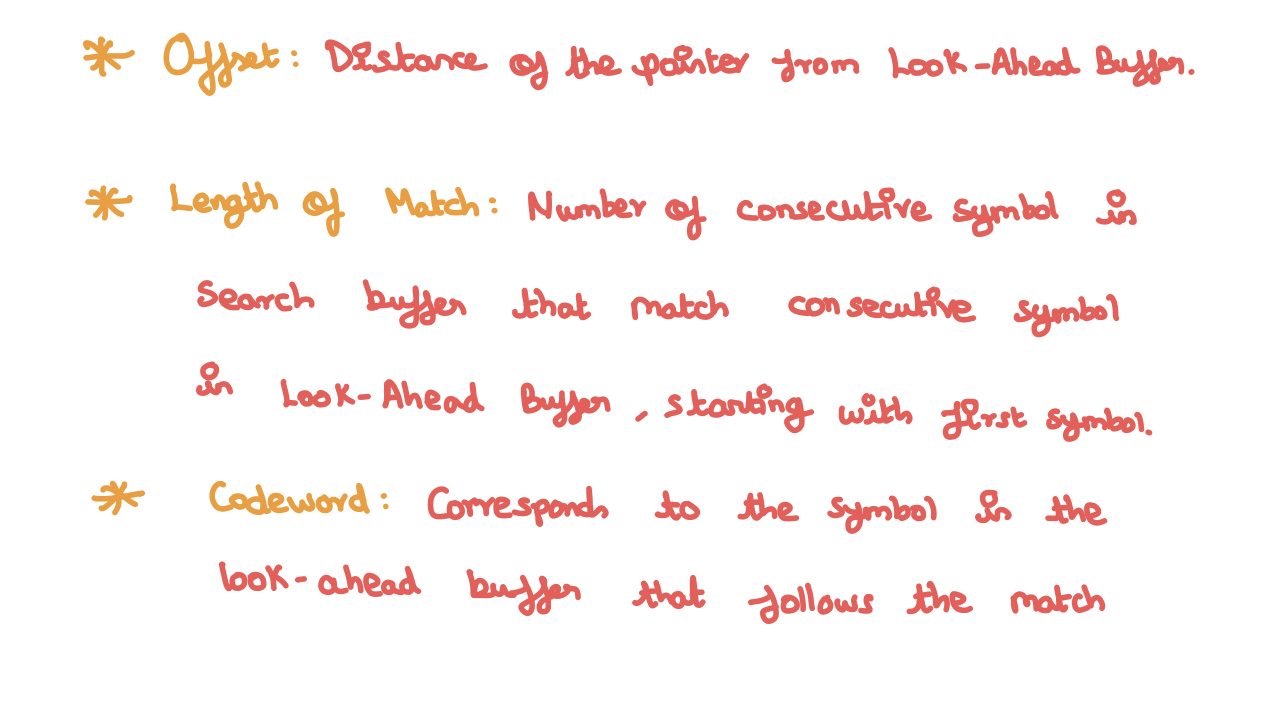 * Offset: Distance of the pointer from Look-Ahead Buffer.
* Length of Match: Number of consecutive symbol in
search buffer that match consecutive symbol
in Look-Ahead Buffer, starting with first symbol.
* Codeword: Correspond to the symbol in the
look-ahead buffer that follows the match